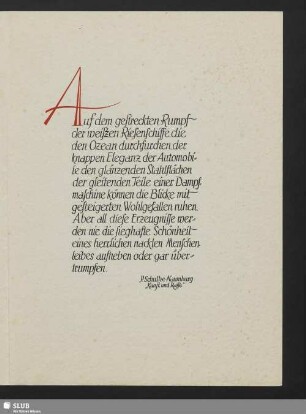 Auf dem gestreckten Rumpf
der weißen Riesenschiffe die
den Ozean durchfurchen der
knappen Eleganz der Automobi-
le den glänzenden Stahlflächen
der gleitenden Teile einer Dampf
maschine können die Blicke mit
gesteigerten Wohlgefallen ruhen.
Aber all diese Erzeugnisse wer-
den nie die sieghafte Schönheit
eines herrlichen nackten Menschen
leibes aufheben oder gar über-
trumpfen.
P. Schultze Naumburg
"Kunst und Rasse"
SLUB